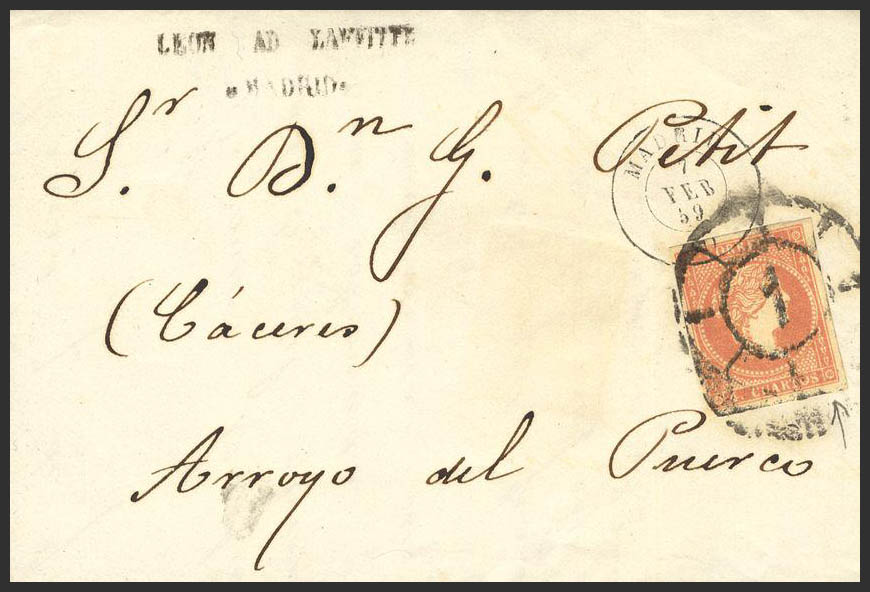 LEON AD LAFFITTE
MADRID
Sr. Dn. G. Petit
MADRID
7
FEB
59
CORREOS
1
CUARTOS
(Cáceres)
Arroyo del Puerco